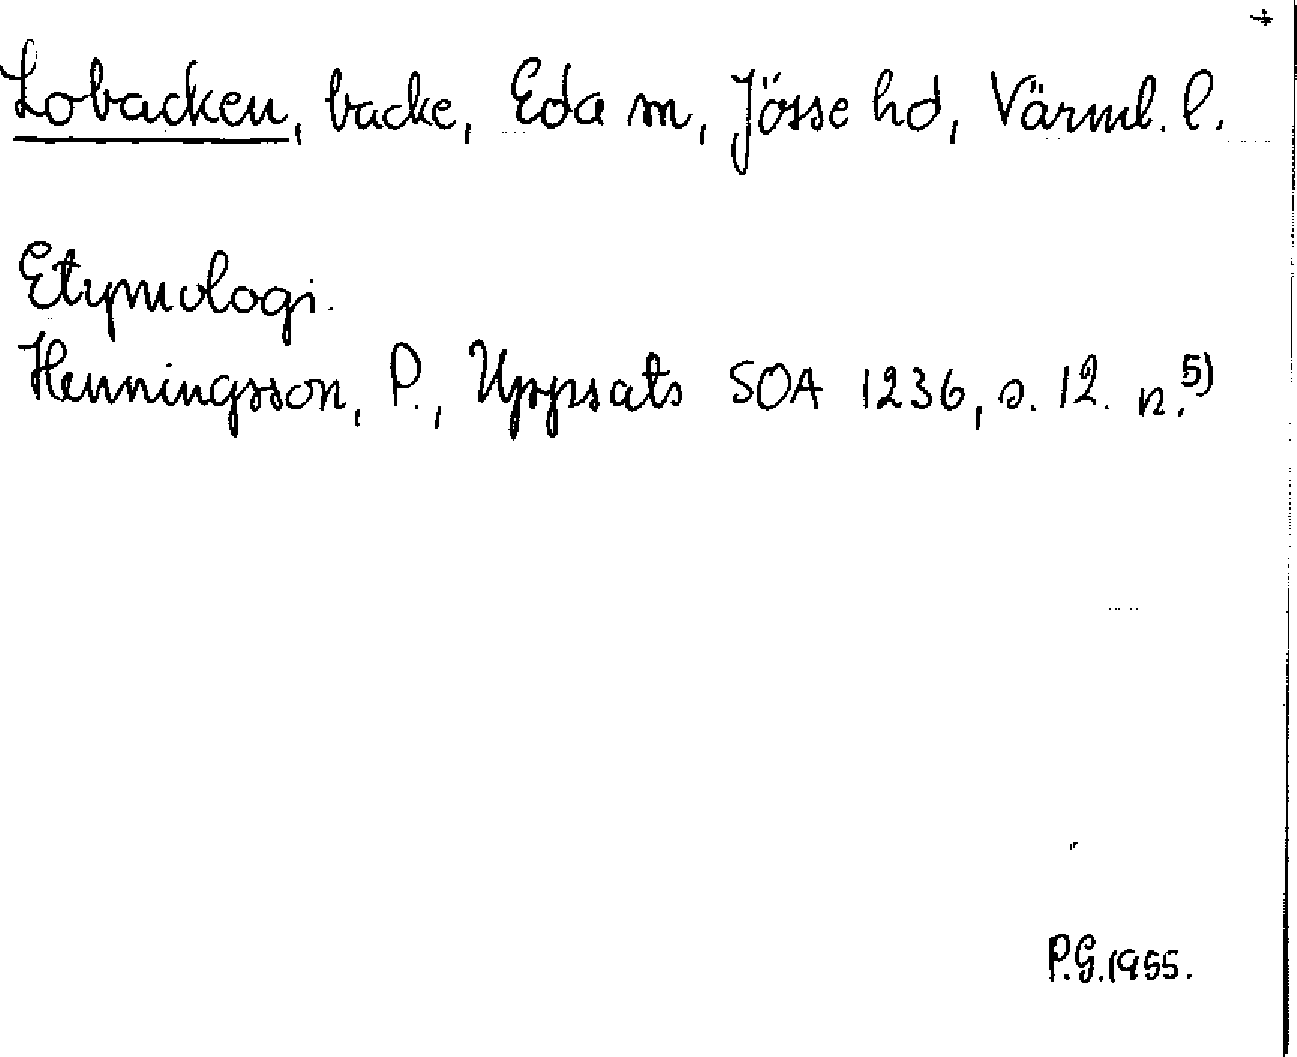 Lobacken, backe, Eda sn, Jösse hd, Värml. l.
Etymologi.
Henningsson, P., Uppsats SOA 1236, s. 12. n.5)
P.G.1955.